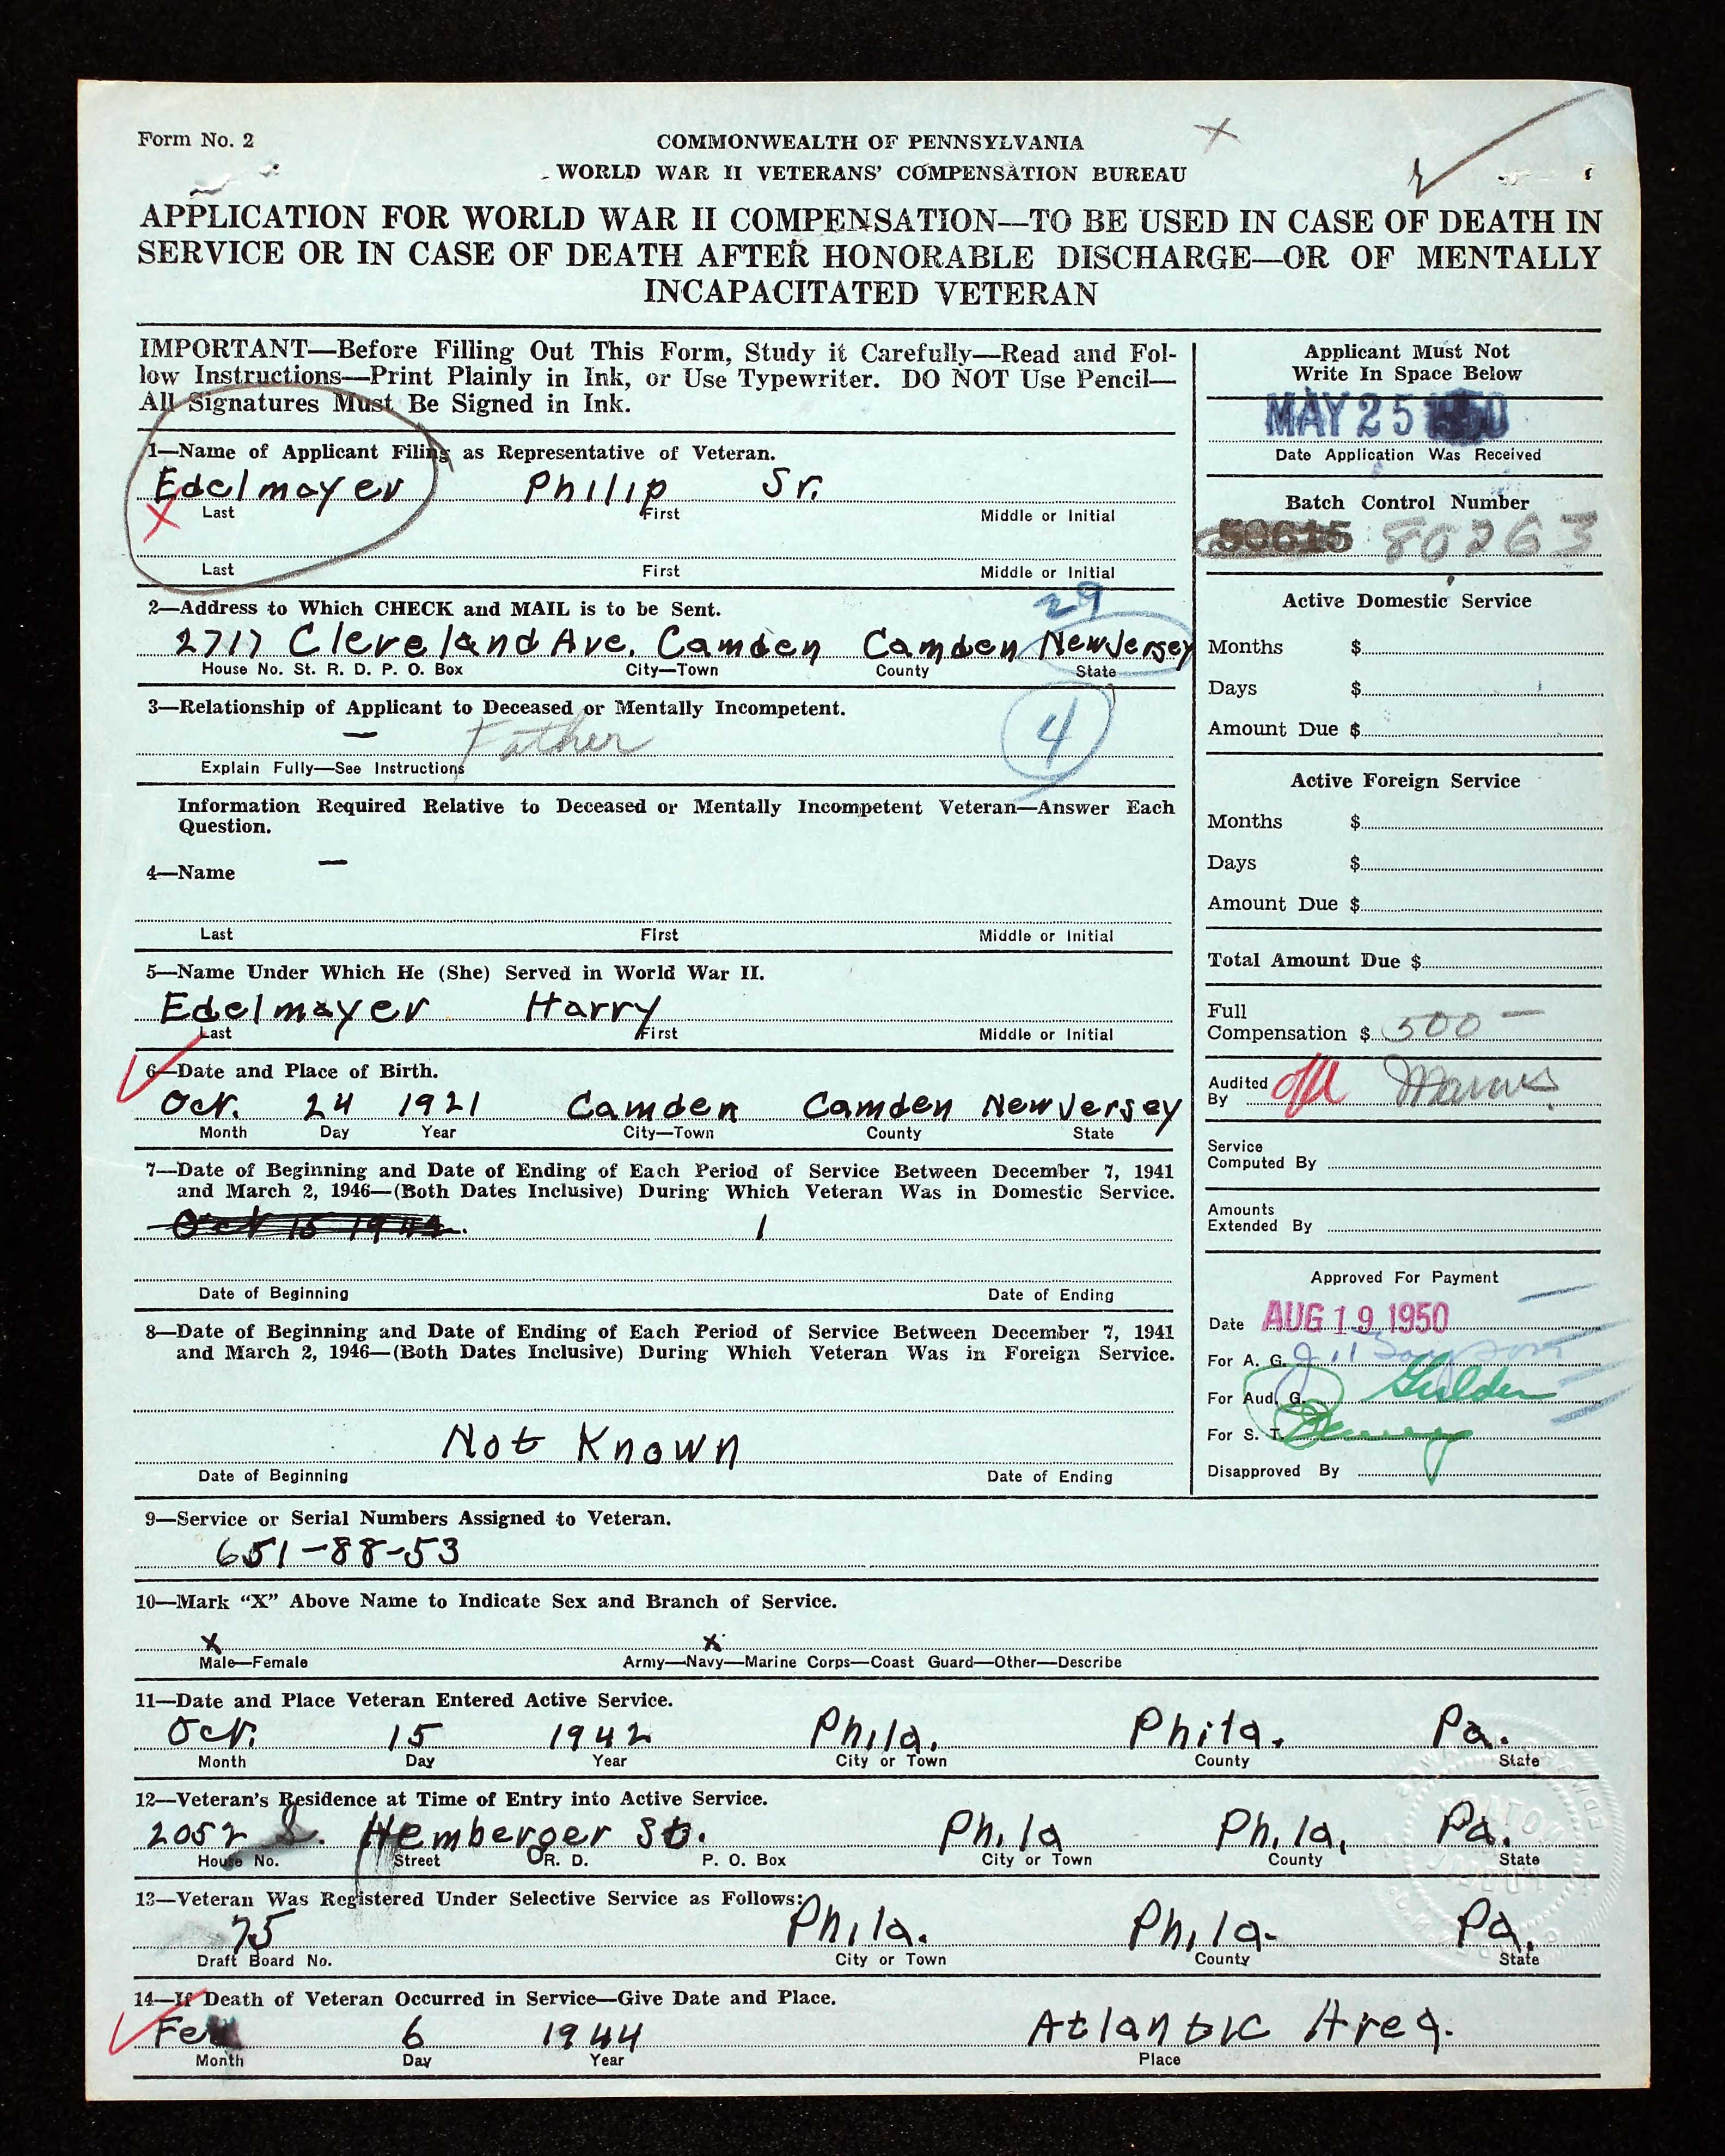 Form No. 2
COMMONWEALTH OF PENNSYLVANIA
WORLD WAR II VETERANS' COMPENSATION BUREAU
APPLICATION FOR WORLD WAR II COMPENSATION—TO BE USED IN CASE OF DEATH IN
SERVICE OR IN CASE OF DEATH AFTER HONORABLE DISCHARGE—OR OF MENTALLY
INCAPACITATED VETERAN
IMPORTANT—Before Filling Out This Form, Study it Carefully—Read and Fol-
low Instructions—Print Plainly in Ink, or Use Typewriter. DO NOT Use Pencil—
All Signatures Must Be Signed in Ink.
1—Name of Applicant Filing as Representative of Veteran.
Edelmayer Philip Sr.
X
Last First Middle or Initial
Last First Middle or Initial
2—Address to Which CHECK and MAIL is to be Sent.
29
2717 Cleveland Ave. Camden Camden New Jersey
House No. St. R. D. P. O. Box City—Town County State
3—Relationship of Applicant to Deceased or Mentally Incompetent.
— Father
4
Explain Fully—See Instructions
Information Required Relative to Deceased or Mentally Incompetent Veteran—Answer Each
Question.
4—Name —
Last First Middle or Initial
5—Name Under Which He (She) Served in World War II.
Edelmayer Harry
Last First Middle or Initial
6—Date and Place of Birth.
Oct. 24 1921 Camden Camden New Jersey
Month Day Year City—Town County State
7—Date of Beginning and Date of Ending of Each Period of Service Between December 7, 1941
and March 2, 1946—(Both Dates Inclusive) During Which Veteran Was in Domestic Service.
Date of Beginning Date of Ending
8—Date of Beginning and Date of Ending of Each Period of Service Between December 7, 1941
and March 2, 1946—(Both Dates Inclusive) During Which Veteran Was in Foreign Service.
Not Known
Date of Beginning Date of Ending
Applicant Must Not
Write In Space Below
MAY 25 1950
Date Application Was Received
Batch Control Number
50615 80263
Active Domestic Service
Months $
Days $
Amount Due $
Active Foreign Service
Months $
Days $
Amount Due $
Total Amount Due $
Full
Compensation $ 500 —
Audited
By
Service
Computed By
Amounts
Extended By
Approved For Payment
Date AUG 19 1950
For A. G.
For Aud. G. Gulden
For S. T.
Disapproved By
9—Service or Serial Numbers Assigned to Veteran.
651-88-53
10—Mark "X" Above Name to Indicate Sex and Branch of Service.
X X
Male—Female Army—Navy—Marine Corps—Coast Guard—Other—Describe
11—Date and Place Veteran Entered Active Service.
Oct. 15 1942 Phila. Phila. Pa.
Month Day Year City or Town County State
12—Veteran's Residence at Time of Entry into Active Service.
2052 S. Hemberger St. Phila Phila. Pa.
House No. Street R. D. P. O. Box City or Town County State
13—Veteran Was Registered Under Selective Service as Follows:
75 Phila. Phila. Pa.
Draft Board No. City or Town County State
14—If Death of Veteran Occurred in Service—Give Date and Place.
Feb 6 1944 Atlantic Area.
Month Day Year Place